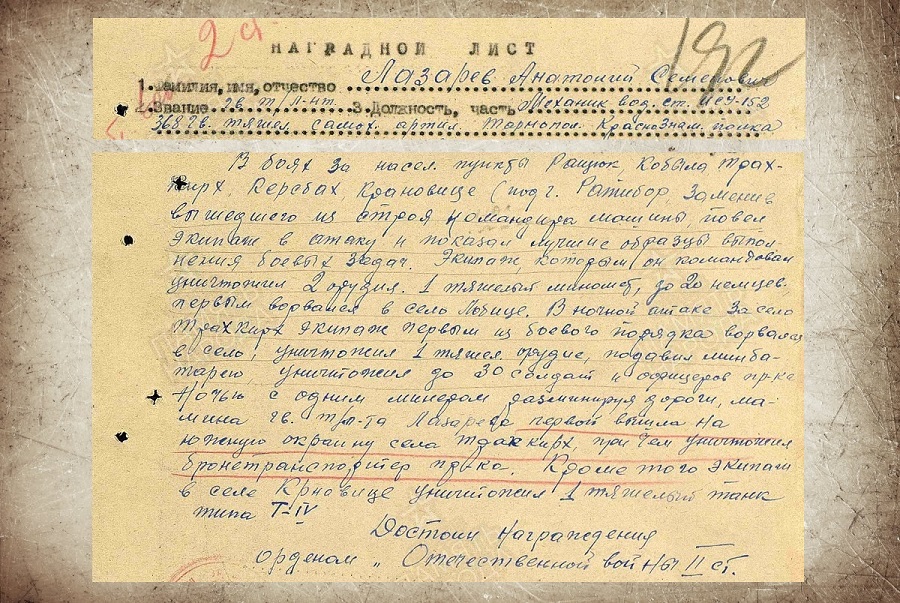 2а
НАГРАДНОЙ ЛИСТ
1. Фамилия, имя, отчество Лазарев Анатолий Семенович
2. Звание гв. т/л-нт. 3. Должность, часть Механик вод. ст. ИСУ-152
368 гв. тяжел. самох. артил. Тарнопол. Краснознам. полка
В боях за насел. пункты Рашюк Кобыла Трах-
кирх, Керебах, Крановице (под г. Ратибор, Заменив
вышедшего из строя командира машины, повел
экипаж в атаку и показал лучшие образцы выпол-
нения боевых задач. Экипаж, которым он командовал
уничтожил 2 орудия. 1 тяжелый миномет, до 20 немцев,
первым ворвался в село. В ночной атаке за село
Трахкирх экипаж первым из боевого порядка ворвался
в село, уничтожил 1 тяжел. орудие, подавил минба-
тарею, уничтожил до 30 солдат и офицеров пр-ка
Ночью с одним минером разминируя дороги, ма-
шина гв. т/л-та Лазарева первой вышла на
южную окраину села Трахкирх, при чем уничтожил
бронетранспортер пр-ка. Кроме того экипаж
в селе Крновице уничтожил 1 тяжелый танк
типа Т-IV
Достоин награждения
орденом „Отечественной войны II ст.